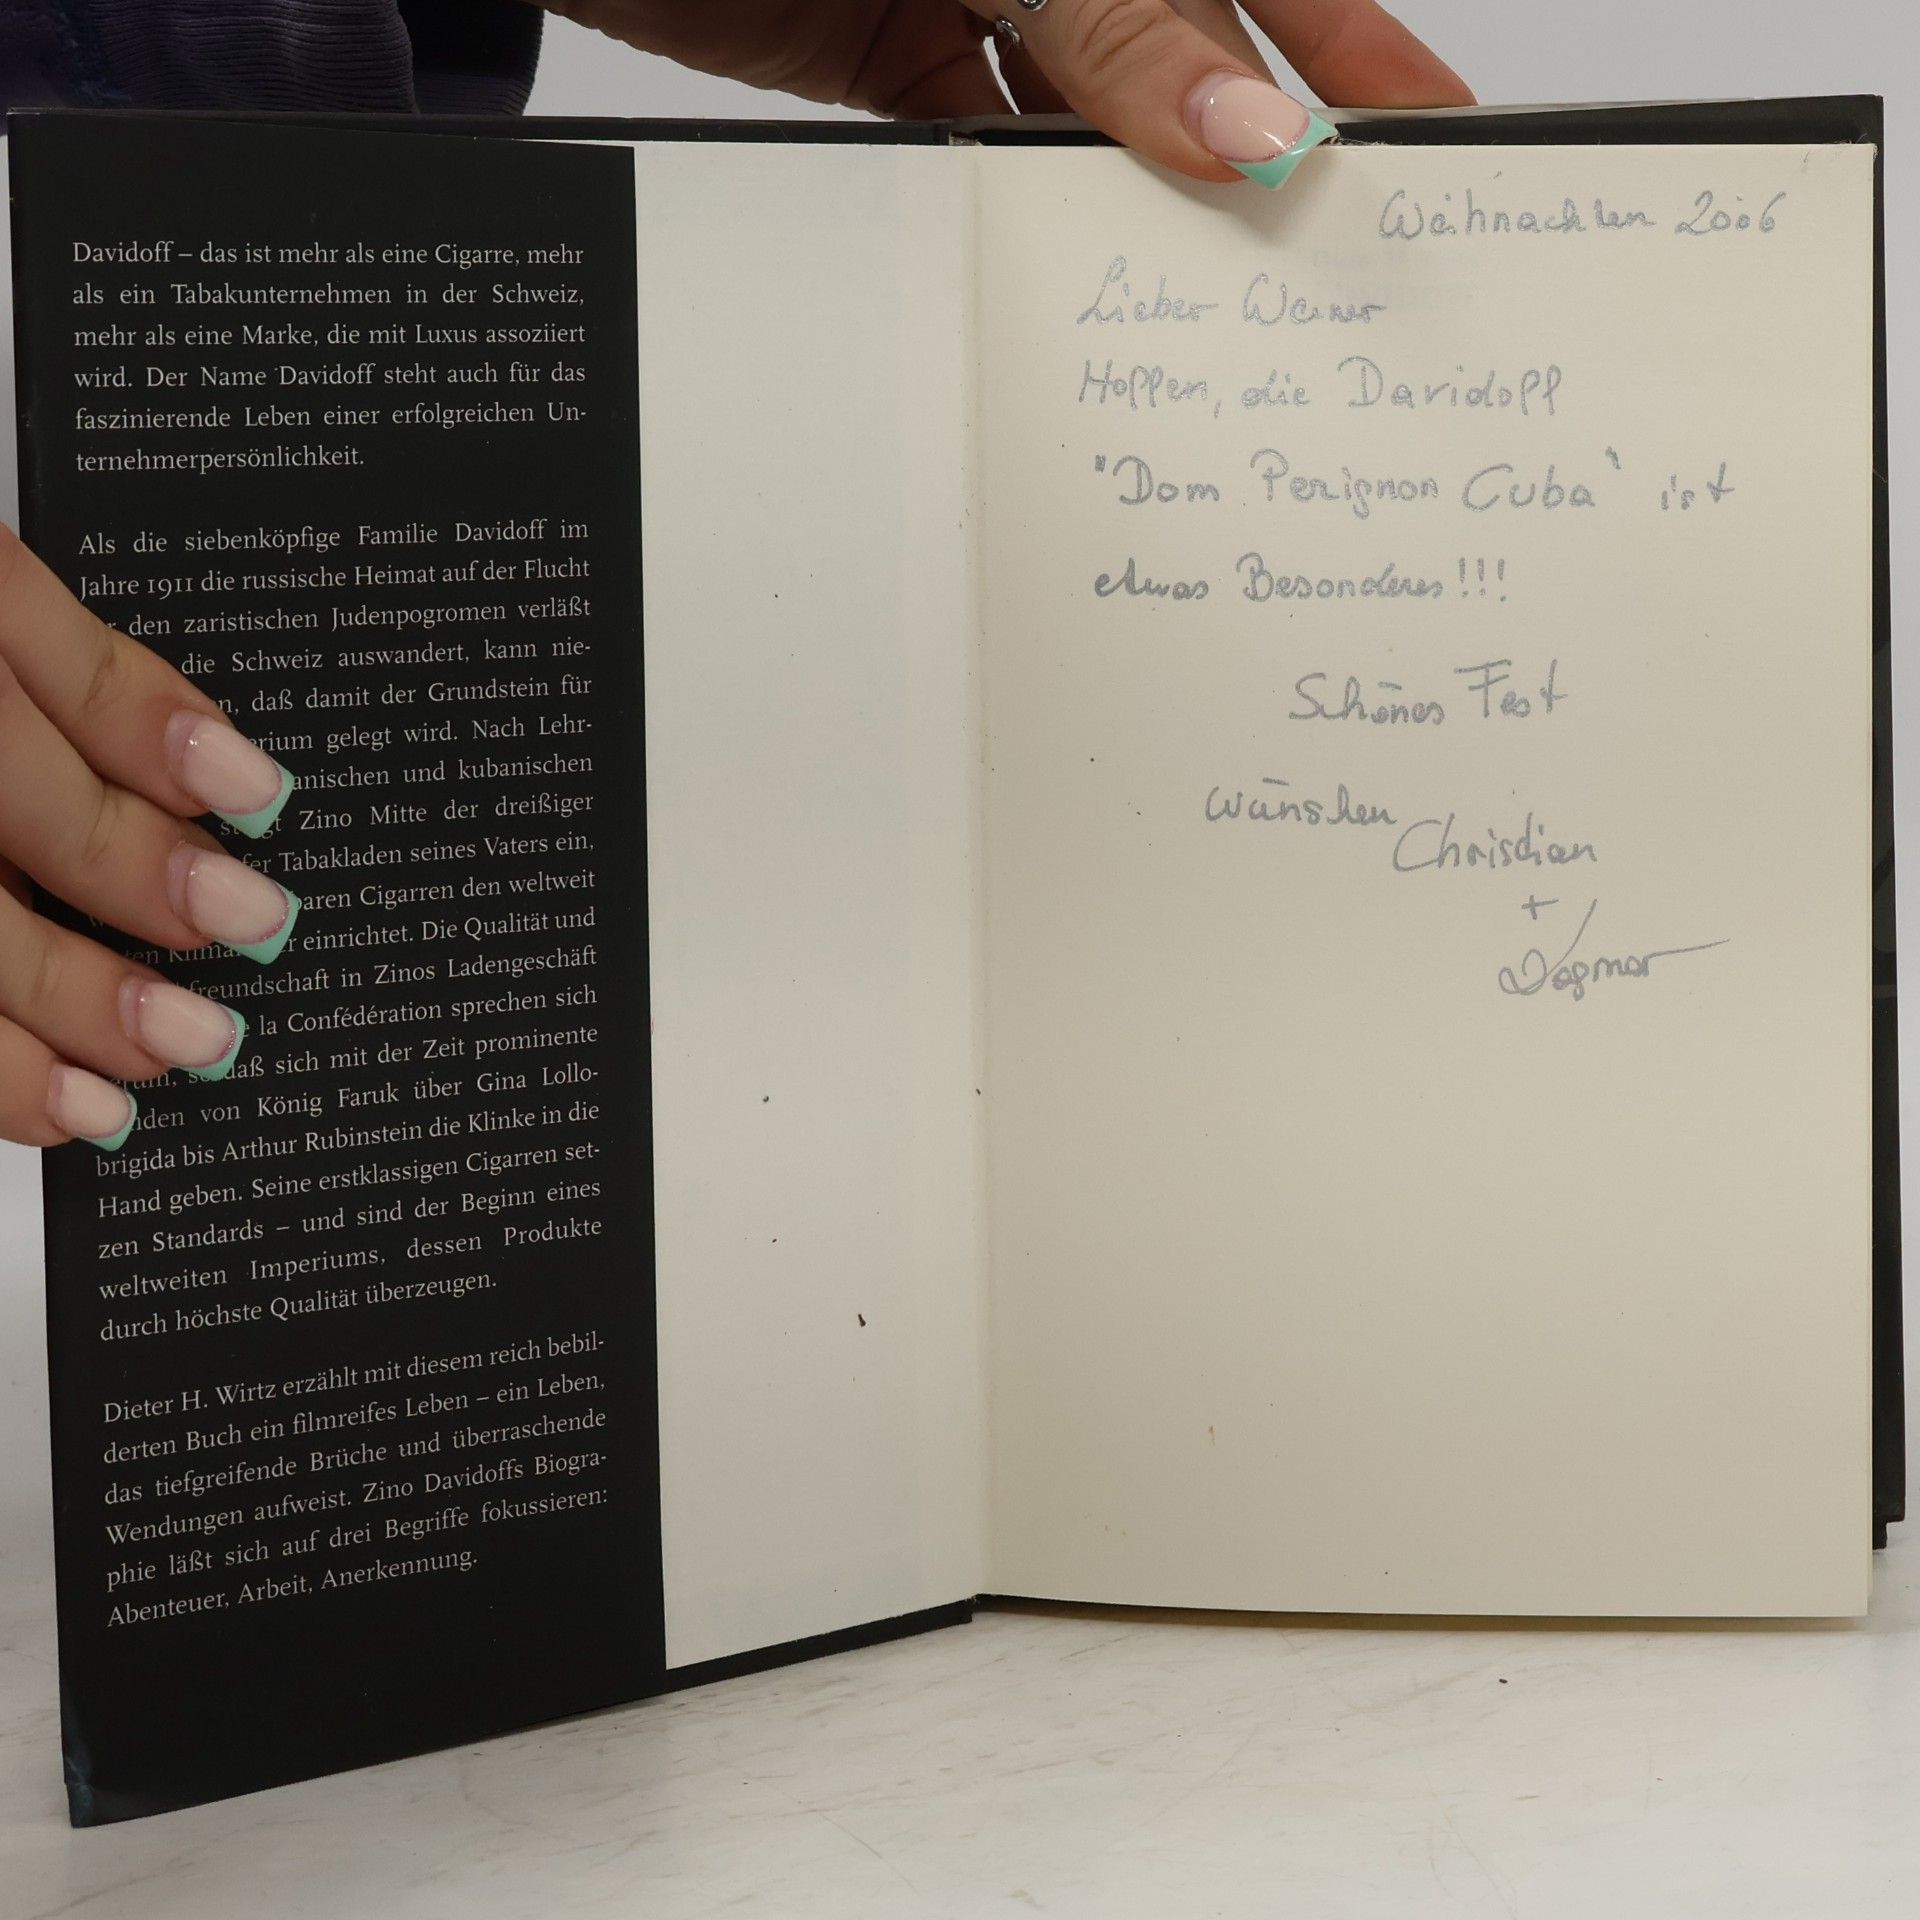 Davidoff – das ist mehr als eine Cigarre, mehr
als ein Tabakunternehmen in der Schweiz,
mehr als eine Marke, die mit Luxus assoziiert
wird. Der Name Davidoff steht auch für das
faszinierende Leben einer erfolgreichen Un-
ternehmerpersönlichkeit.
Als die siebenköpfige Familie Davidoff im
Jahre 1911 die russische Heimat auf der Flucht
den zaristischen Judenpogromen verläßt
die Schweiz auswandert, kann nie-
daß damit der Grundstein für
gelegt wird. Nach Lehr-
anischen und kubanischen
Zino Mitte der dreißiger
Tabakladen seines Vaters ein,
baren Cigarren den weltweit
einrichtet. Die Qualität und
freundschaft in Zinos Ladengeschäft
la Confédération sprechen sich
daß sich mit der Zeit prominente
von König Faruk über Gina Lollo-
brigida bis Arthur Rubinstein die Klinke in die
Hand geben. Seine erstklassigen Cigarren set-
zen Standards – und sind der Beginn eines
weltweiten Imperiums, dessen Produkte
durch höchste Qualität überzeugen.
Dieter H. Wirtz erzählt mit diesem reich bebil-
derten Buch ein filmreifes Leben – ein Leben,
das tiefgreifende Brüche und überraschende
Wendungen aufweist. Zino Davidoffs Biogra-
phie läßt sich auf drei Begriffe fokussieren:
Abenteuer, Arbeit, Anerkennung.
Weihnachten 2006
Lieber Werner
Hoffen, die Davidoff
"Dom Perignon Cuba" ist
etwas Besonderes!!!
Schönes Fest
wünschen
Christian
+
Dagmar